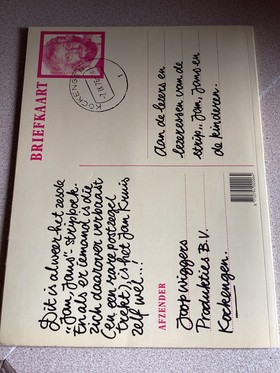 BRIEFKAART
KOCKENGEN
Dit is alweer het zesde
"Jan, Jans"-stripboek.
En als er iemand is die
zich daarover verbaast
(en een rare postzegel
trekt), is het Jan Kruis
zelf wel...!
Aan de lezers en
lezeressen van de
strip.. Jan, Jans en
de kinderen..
AFZENDER
Joop Wiggers
Produkties B.V.
Kockengen.